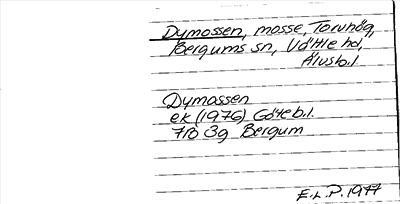 Dymossen, mosse, Torvhög,
Bergums sn, Vättle hd,
Älvsb.l
Dymossen
ek (1976) Göteb.l.
7B 3g Bergum
E.L.P. 1977